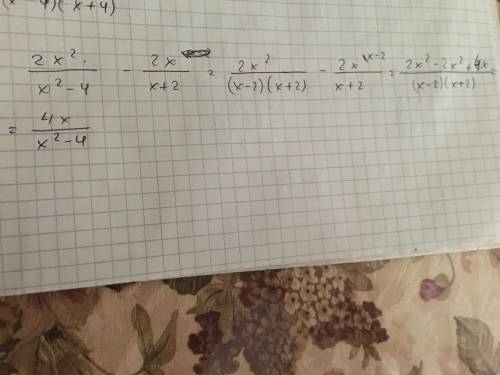 (x - 4)(x+4)
2x²/(x²-4) - 2x/(x+2) = 2x²/((x-2)(x+2)) - 2x\x-2/(x+2) = (2x²-2x²+4x)/((x-2)(x+2)) =
= 4x/(x²-4)